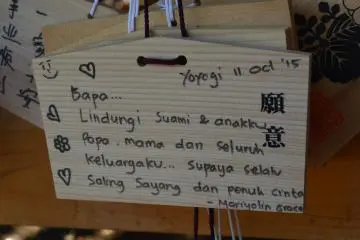 Yoyogi 11 Oct '15
Bapa...
Lindungi Suami & anakku
Popo, mama dan seluruh
keluargaku... supaya selalu
Saling Sayang dan penuh cinta
- Mariyolin Grace
願意